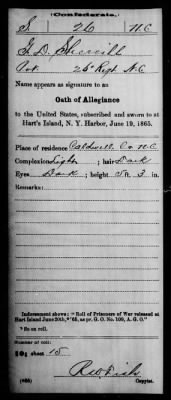 (Confederate.)
S 26 N.C.
J. D. Sherrill
Pvt. 26 Regt. N.C.
Name appears as signature to an
Oath of Allegiance
to the United States, subscribed and sworn to at
Hart's Island, N. Y. Harbor, June 19, 1865.
Place of residence Caldwell Co. N.C.
Complexion Light ; hair Dark
Eyes Dark ; height 5 ft. 3 in.
Remarks:
Indorsement shows: "Roll of Prisoners of War released at
Hart Island June 20th, '65, as pr. G. O. No. 109, A. G. O."
Number of roll:
sheet 15
(656) Copyist.